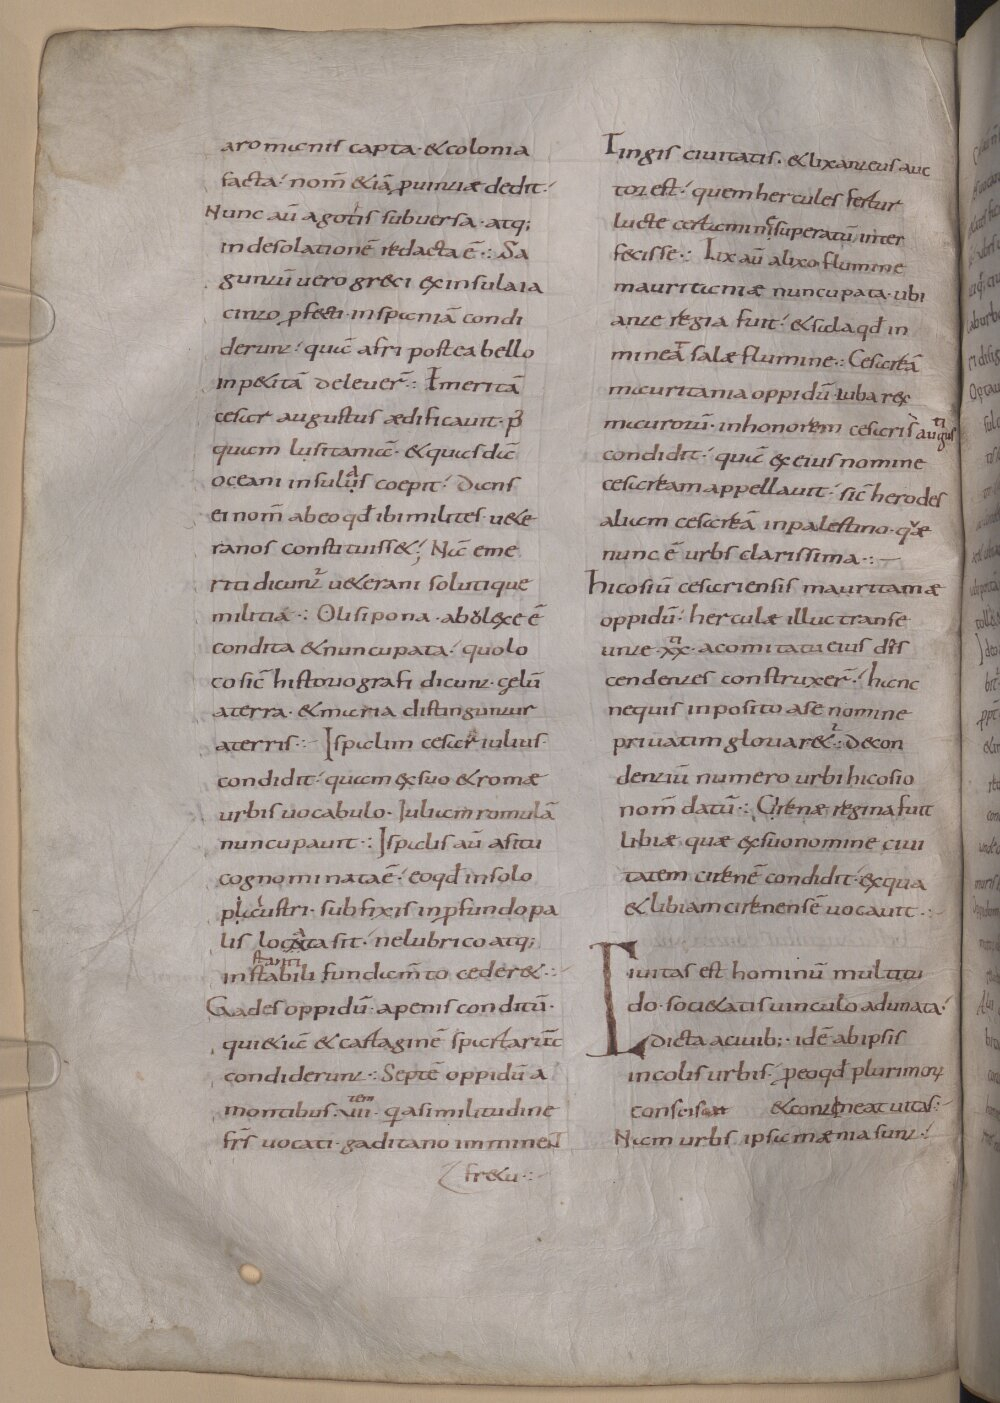 aromanis capta · & colonia
facta · nom̄ &iā ꝓuintiæ dedit ·
Nunc aū agotis subuersa · atq;
in desolationē redacta ē ·: Sa
guntū uero greci ex insula ia
cinto ꝓfecti · in spaniā condi
derunt · quā afri postea bello
inpetitā deleuer̄ ·: Imeritā
cesar augustus ædificauit · p̄
quam lusitaniā · & quasdā
oceani insulas coepit · dans
ei nom̄ ab eo qđ ibi milites · uete
ranos constituiss&; Nā eme
riti dicunt̄ ueterani solutique
militia ·: Olisipona · ab olexe ē
condita & nuncupata · quo lo
co sic̄ historiografi dicunt · celū
a terra · & maria distinguntur
a terris ·: Ispalim cesar iulius ·
condidit · quam ex suo & romæ
urbis uocabulo · Iuliam romulā
nuncupauit ·: Ispalis aū a situ
cognominata ē · eo qđ in solo
palustri · subfixis in ꝓfundo pa
lis locata sit · ne lubrico atq;
instabili fundamto ceder& ·:
stanti
Gades oppidū · a penis conditū ·
qui &iā & cartaginē spartariā
condiderunt ·: Septē oppidū a
montibus · uiii · q a similitudine
tem
frs̄ uocati · gaditano imminent
fr&u ·:
Tingis ciuitatis · & lixa int eius auc
tor est · quem hercules fertur
lucte certamine superatū inter
fecisse ·: Lix aū a lixo flumine
mauritaniæ nuncupata · ubi
ante regia fuit · & sala qđ in
mineat salæ flumine ·: Cesarea
mauritania oppidū · iuba rex
maurorū · in honorem cesaris augus
ti
condidit · quā ex eius nomine
cesaream appellauit · sic̄ herodes
aliam cesareā in palestino · quæ
nunc ē urbs clarissima ·:
hicosiū cesariensis mauritaniæ
oppidū · herculæ illuc transe
unte · xx · a comitatu eius dis
ti
cendentes construxer̄ · hanc
ne quis inposito a se nomine
priuatim gloriaret̄ ·: de con
dentiū numero urbi hicosio
nom̄ datū ·: Cirenæ regina fuit
libiæ quæ ex suo nomine ciui
tatem cirenē condidit · ex qua
& libiam cirenensē uocauit ·:
Ciuitas est hominū multitu
do · soci&atis uinculo adunata ·
dicta a ciuib; · idē ab ipsis
incolis urbis · ꝓ eo qđ plurimorꝝ
consciscat & contineat uitas ·:
Nam urbs ipsa mænia sunt ·